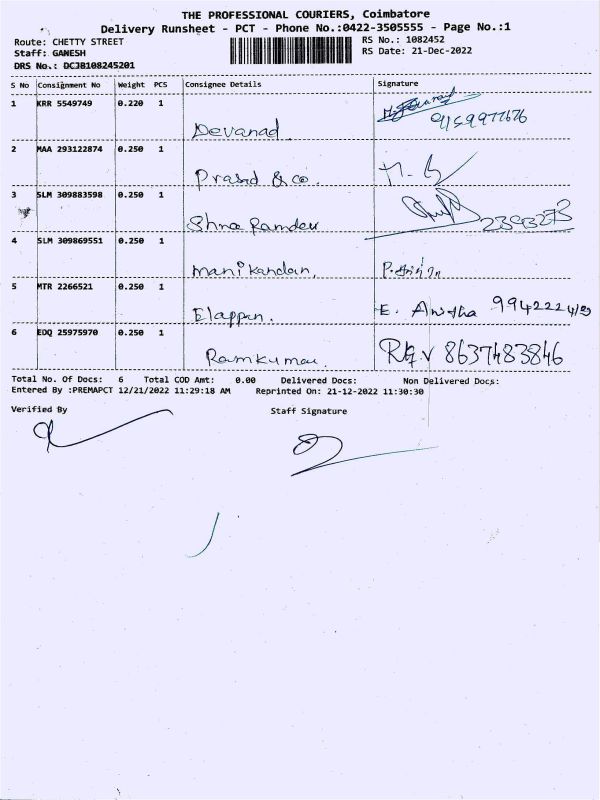 THE PROFESSIONAL COURIERS, Coimbatore
Delivery Runsheet - PCT - Phone No.:0422-3505555 - Page No.:1
Route: CHETTY STREET
Staff: GANESH
DRS No.: DCJB108245201
RS No.: 1082452
RS Date: 21-Dec-2022
S No Consignment No Weight PCS Consignee Details Signature
1 KRR 5549749 0.220 1 Devanad
2 MAA 293122874 0.250 1 Prasad & co.
3 SLM 309883598 0.250 1 Shree Ramdev
4 SLM 309869551 0.250 1 manikandan,
5 MTR 2266521 0.250 1 Elappan. E. Anitha
6 EDQ 25975970 0.250 1 Ramkumar 8637483846
Total No. Of Docs: 6 Total COD Amt: 0.00 Delivered Docs: Non Delivered Docs:
Entered By :PREMAPCT 12/21/2022 11:29:18 AM Reprinted On: 21-12-2022 11:30:30
Verified By Staff Signature